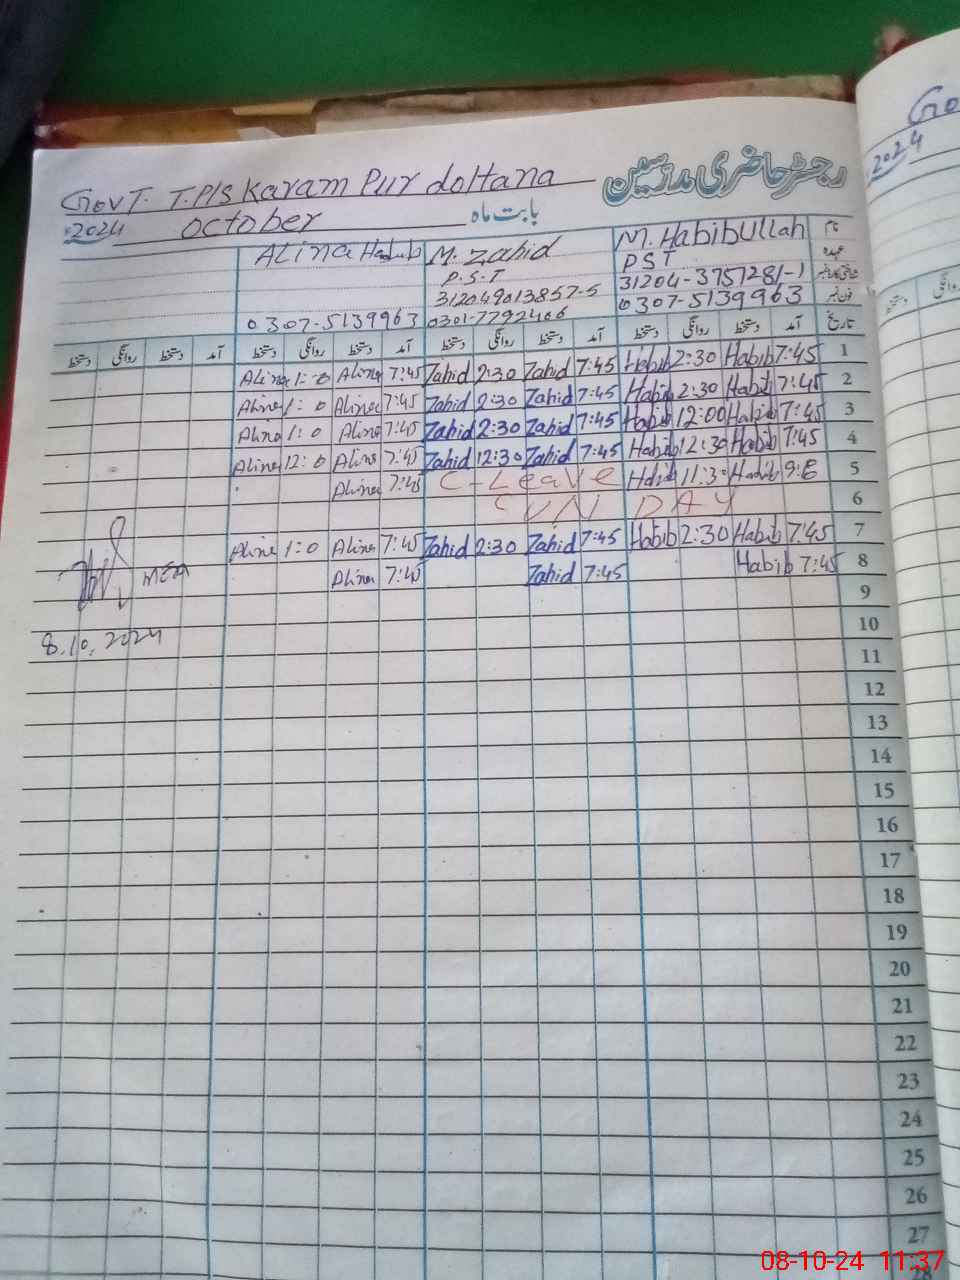 رجسٹر حاضری مدرسین
GOVT. T.P/S Karam Pur doltana
2024 October بابت ماہ
Alina Habib M. Zahid M. Habibullah نام
P.S.T PST عہدہ
312049013857-5 31204-3751281-1 شناختی کارڈ نمبر
0307-5139963 0301-7792406 0307-5139963 فون نمبر
دستخط روانگی دستخط آمد دستخط روانگی دستخط آمد دستخط روانگی دستخط آمد دستخط روانگی دستخط آمد تاریخ
Alina 1:0 Alina 7:45 Zahid 2:30 Zahid 7:45 Habib 2:30 Habib 7:45 1
Alina 1:0 Alina 7:45 Zahid 2:30 Zahid 7:45 Habib 2:30 Habib 7:45 2
Alina 1:0 Alina 7:45 Zahid 2:30 Zahid 7:45 Habib 12:00 Habib 7:45 3
Alina 12:0 Alina 7:45 Zahid 12:30 Zahid 7:45 Habib 12:30 Habib 7:45 4
Alina 7:45 C-Leave Habib 11:30 Habib 5
SUN DAY 6
Alina 1:0 Alina 7:45 Zahid 2:30 Zahid 7:45 Habib 2:30 Habib 7:45 7
Alina 7:45 Zahid 7:45 Habib 7:45 8
MEA
8.10.2024
9
10
11
12
13
14
15
16
17
18
19
20
21
22
23
24
25
26
27
28
Go
2024
دستخط
روانگی
08-10-24 11:37